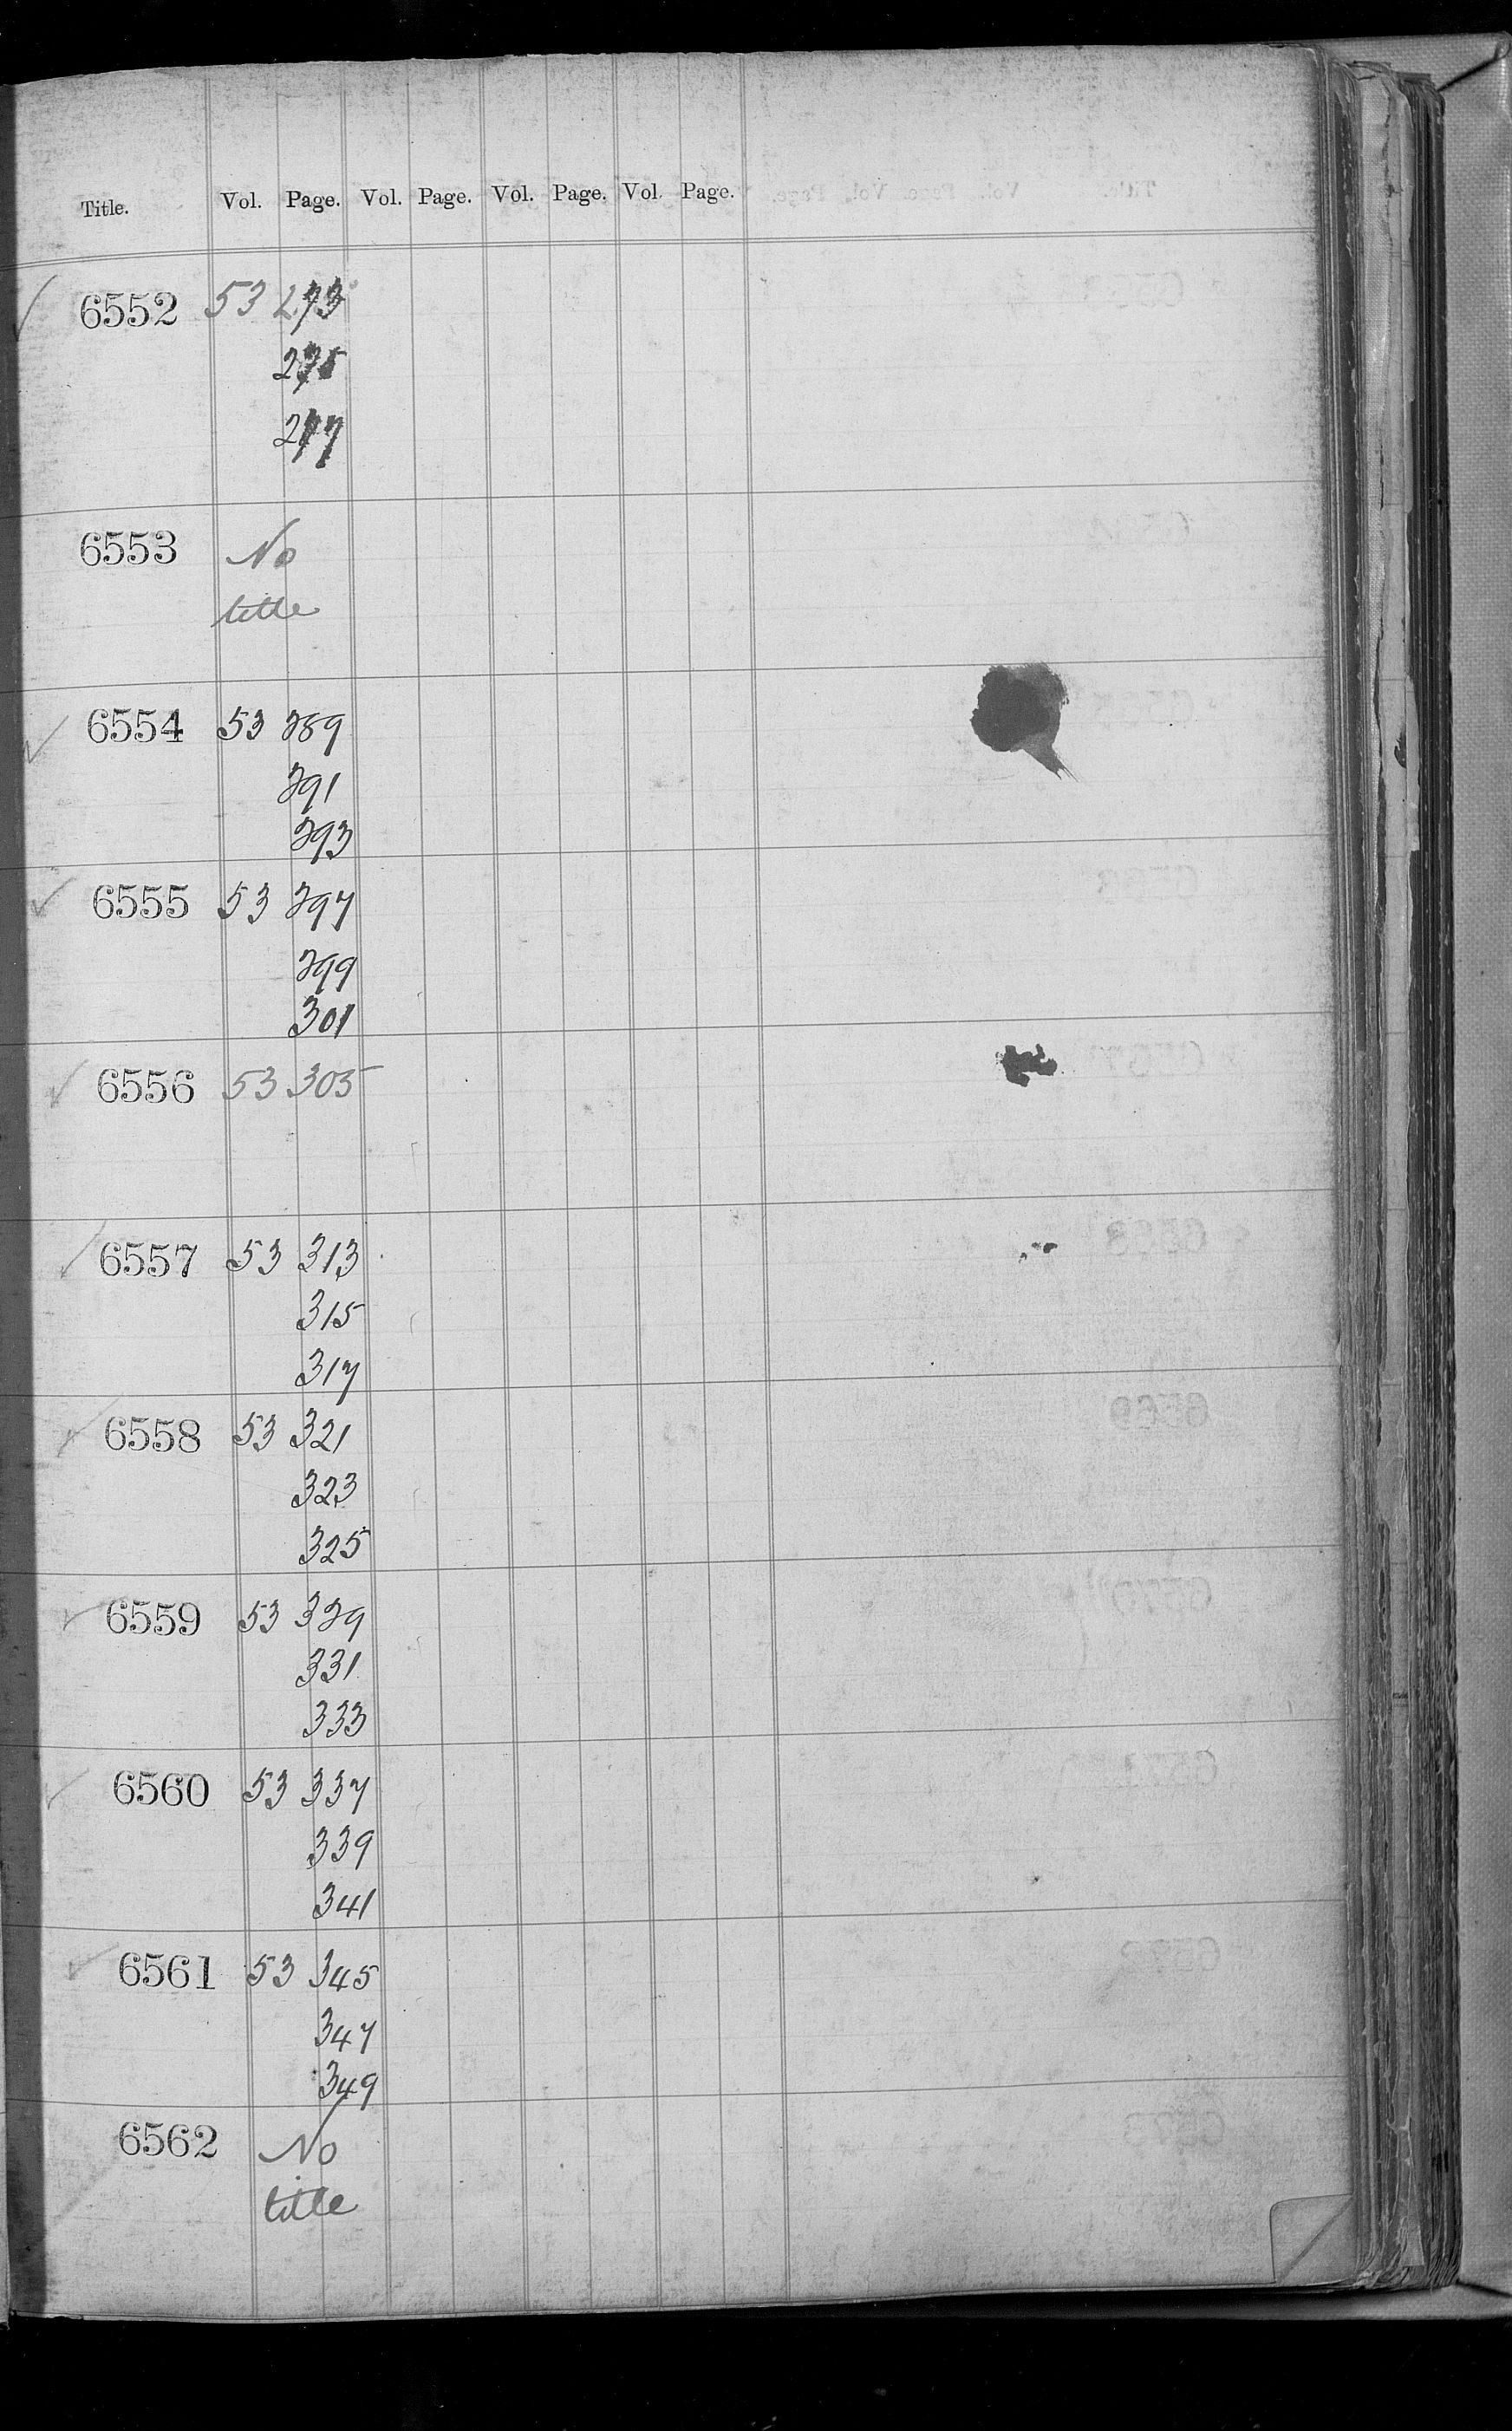 Title. Vol. Page. Vol. Page. Vol. Page. Vol. Page.
6552 53 273
275
277
6553 No
title
6554 53 289
291
293
6555 53 297
299
301
6556 53 305
6557 53 313
315
317
6558 53 321
323
325
6559 53 329
331
333
6560 53 337
339
341
6561 53 345
347
349
6562 No
title